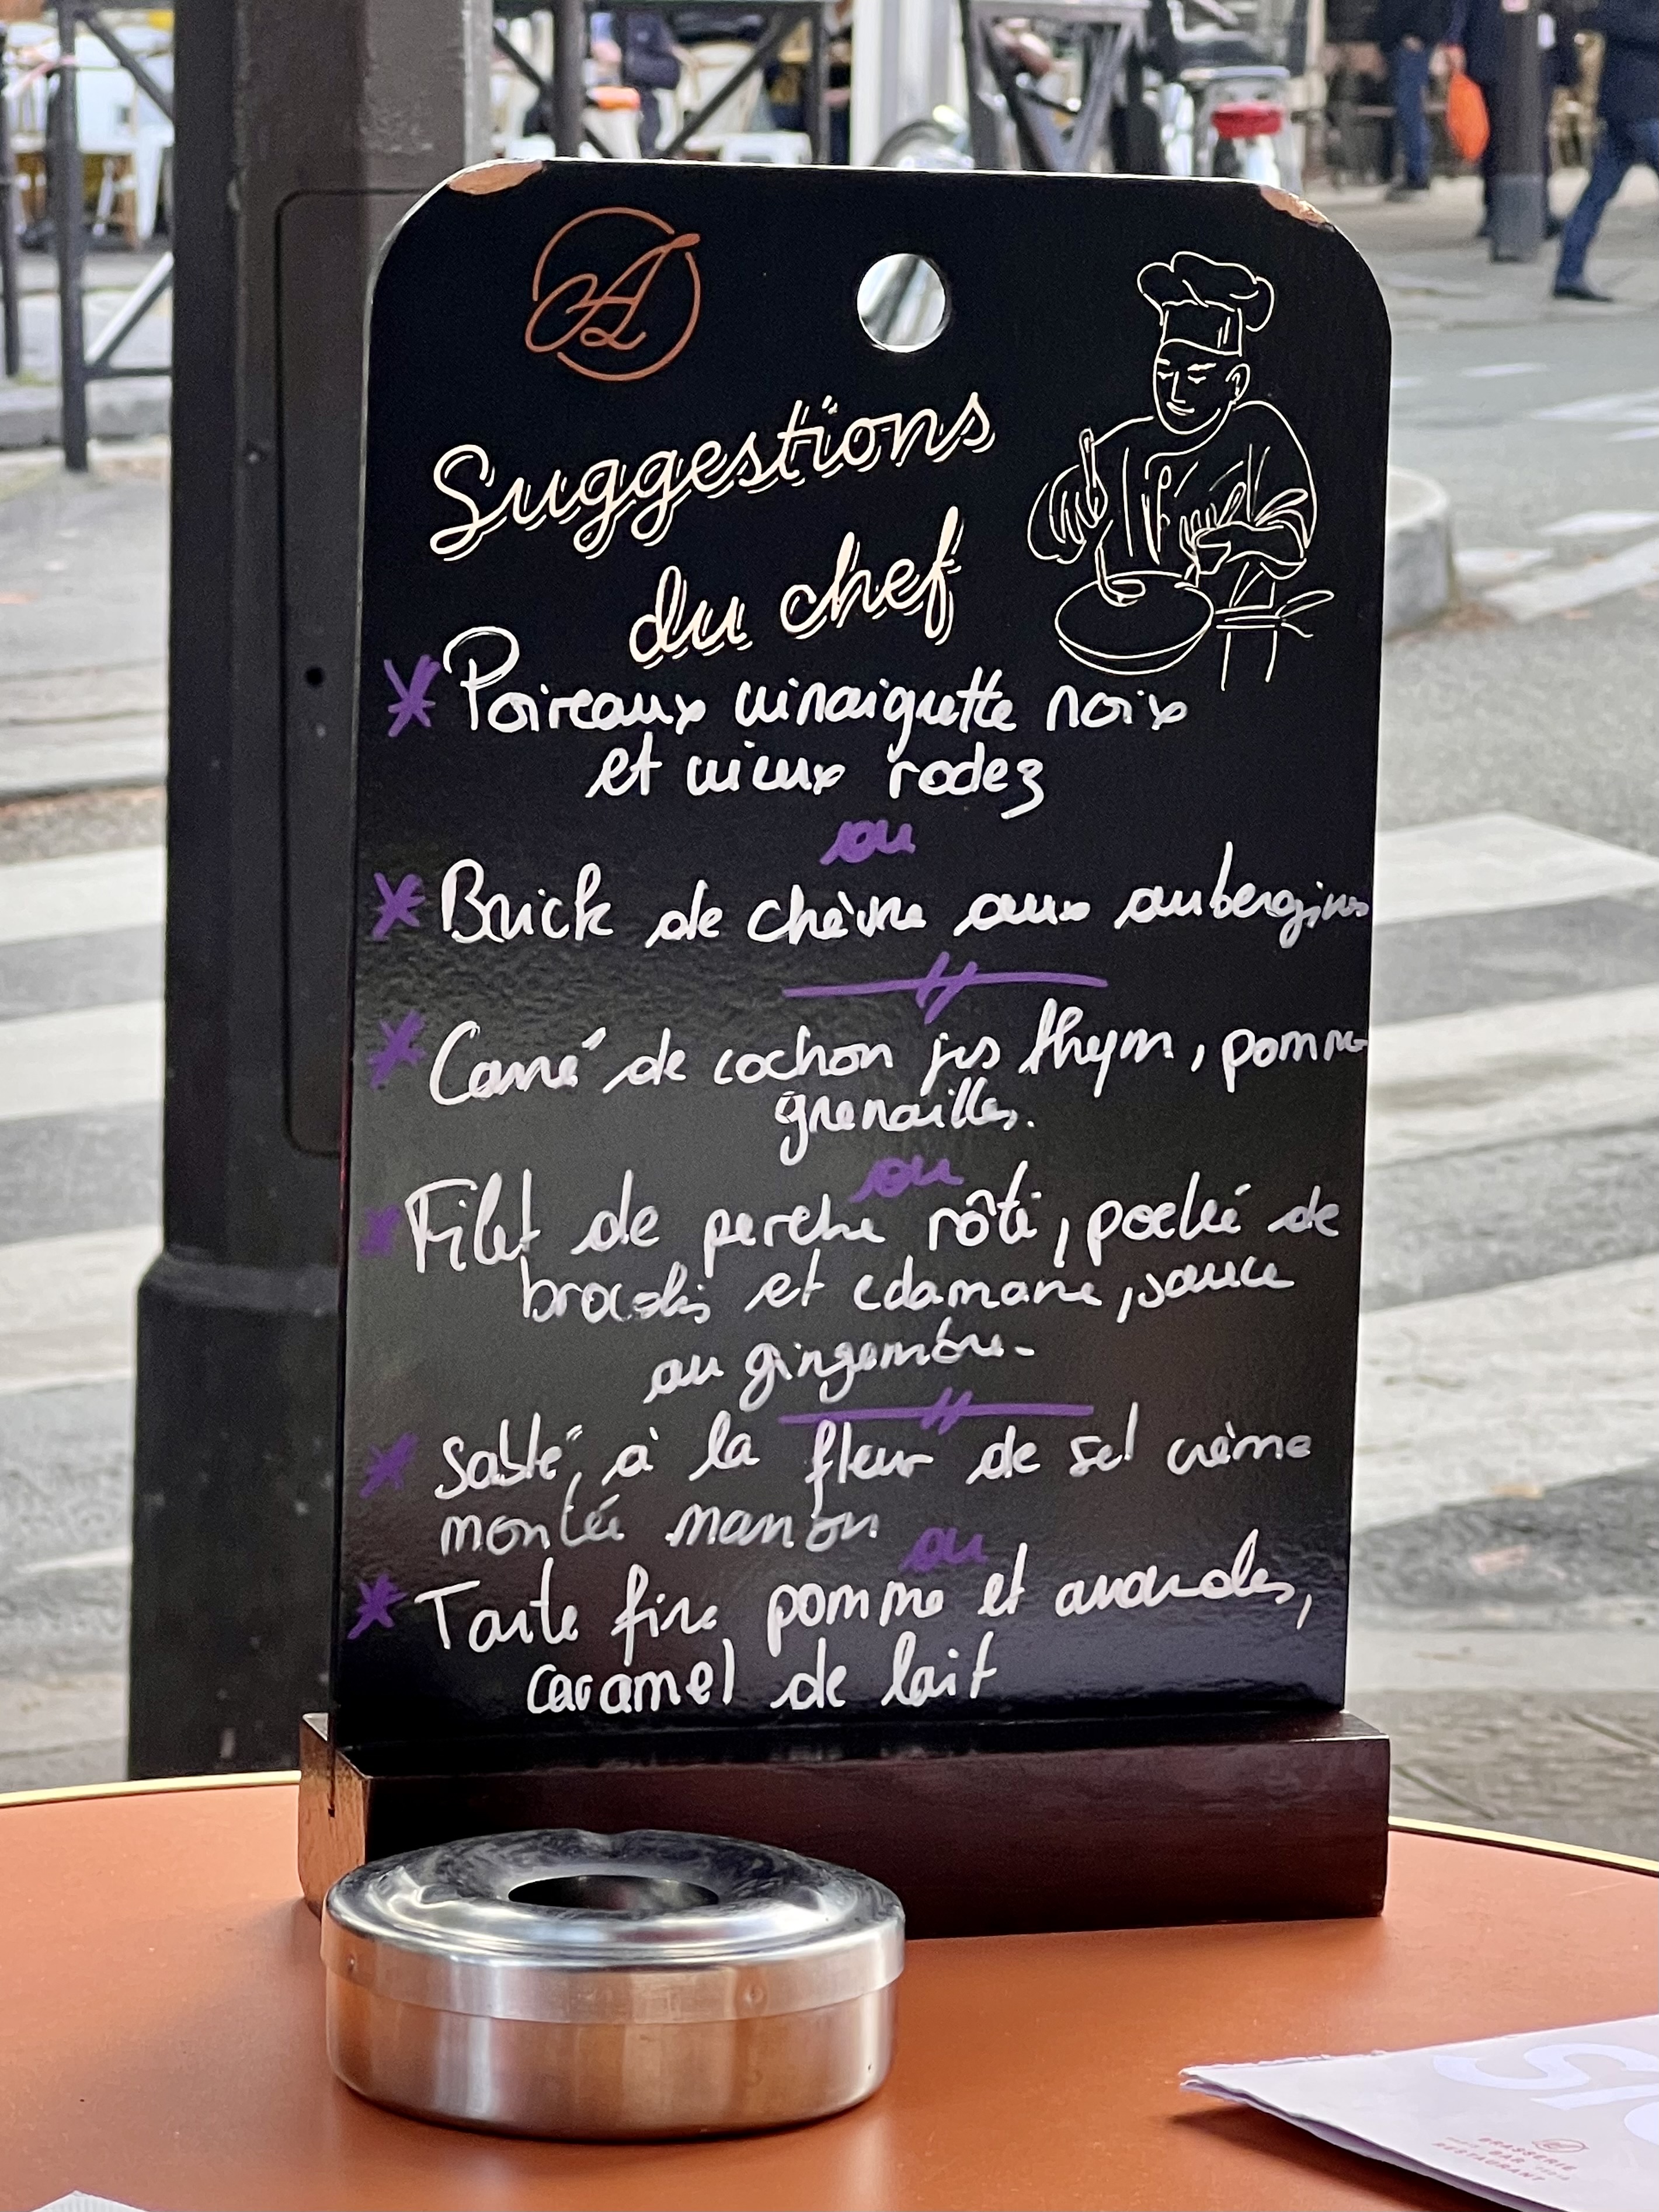 A
Suggestions
du chef
* Poireaux vinaigrette noix
et vieux rodez
ou
* Brick de chèvre aux aubergines
* Carré de cochon jus thym, pomme
grenailles.
ou
* Filet de perche rôti, poêlé de
brocolis et edamame, sauce
au gingembre.
* Sablé, à la fleur de sel crème
montée marron
ou
* Tarte fine pomme et amandes,
caramel de lait
BRASSERIE
BAR
RESTAURANT